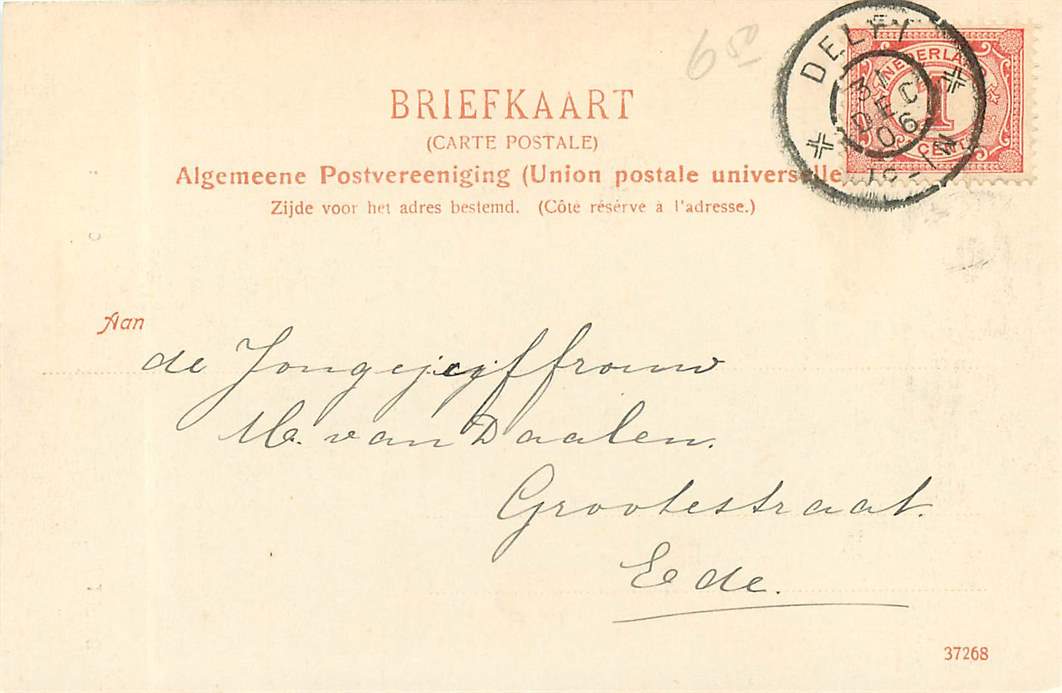 6 50
DELFT
31
DEC
06
NEDERLAND
1
CENT
BRIEFKAART
(CARTE POSTALE)
Algemeene Postvereeniging (Union postale universelle)
Zijde voor het adres bestemd. (Côté réservé à l'adresse.)
Aan
de Jongejejuffrouw
M. van Daalen.
Grootestraat.
Ede.
37268